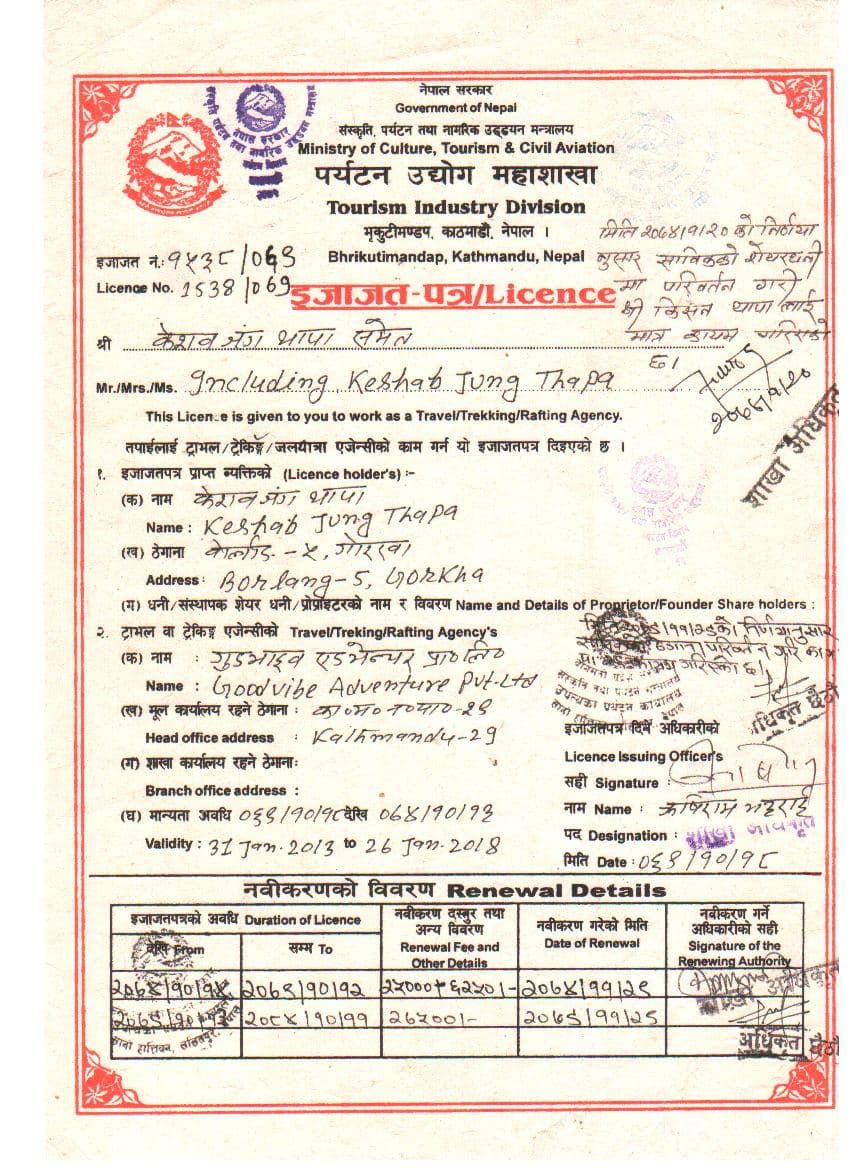 नेपाल सरकार
Government of Nepal
संस्कृति, पर्यटन तथा नागरिक उड्डयन मन्त्रालय
Ministry of Culture, Tourism & Civil Aviation
पर्यटन उद्योग महाशाखा
Tourism Industry Division
भृकुटीमण्डप, काठमाडौं, नेपाल ।
Bhrikutimandap, Kathmandu, Nepal
इजाजत नं.: १५३८/०६९
Licence No. 1538/069
इजाजत-पत्र/Licence
मिति २०७४/९/२० को निर्णया
नुसार साविकको शेयरधनी
मा परिवर्तन गरी
श्री किसन थापा लाई
मात्र कायम गरिएको
छ।
२०७४/९/२०
शाखा अधिकृत
श्री केशव जंग थापा समेत
Mr./Mrs./Ms. Including Keshab Jung Thapa
This Licence is given to you to work as a Travel/Trekking/Rafting Agency.
तपाईलाई ट्राभल/ट्रेकिङ्ग/जलयात्रा एजेन्सीको काम गर्न यो इजाजतपत्र दिइएको छ ।
१. इजाजतपत्र प्राप्त व्यक्तिको (Licence holder's) :-
(क) नाम केशव जंग थापा
Name : Keshab Jung Thapa
(ख) ठेगाना बोर्लाङ - ५, गोरखा
Address : Borlang-5, Gorkha
(ग) धनी/संस्थापक शेयर धनी/प्रोप्राइटरको नाम र विवरण Name and Details of Proprietor/Founder Share holders :
२. ट्राभल वा ट्रेकिङ्ग एजेन्सीको Travel/Treking/Rafting Agency's
(क) नाम : गुडभाइव एडभेन्चर प्रा॰लि॰
Name : Goodvibe Adventure Pvt. Ltd
(ख) मूल कार्यालय रहने ठेगाना : का॰म॰न॰पा॰-२९
Head office address : Kathmandu-29
(ग) शाखा कार्यालय रहने ठेगानाः
Branch office address :
(घ) मान्यता अवधि ०६९/१०/१८ देखि ०७४/१०/१२
Validity : 31 Jan. 2013 to 26 Jan. 2018
निर्णयानुसार
अधिकृत छैठौं
इजाजतपत्र दिने अधिकारीको
Licence Issuing Officer's
सही Signature :
नाम Name : ऋषिराम भट्टराई
पद Designation : शाखा अधिकृत
मिति Date : ०६९/१०/१८
नवीकरणको विवरण Renewal Details
इजाजतपत्रको अवधि Duration of Licence
देखि From
सम्म To
नवीकरण दस्तुर तथा अन्य विवरण Renewal Fee and Other Details
नवीकरण गरेको मिति Date of Renewal
नवीकरण गर्ने अधिकारीको सही Signature of the Renewing Authority
२०७४/१०/१४ २०७९/१०/१२ २५०००+६२५०/- २०७४/११/२९
शाखा अधिकृत
२०८४/१०/११ २६५००/- २०७९/११/२५
अधिकृत छैठौं